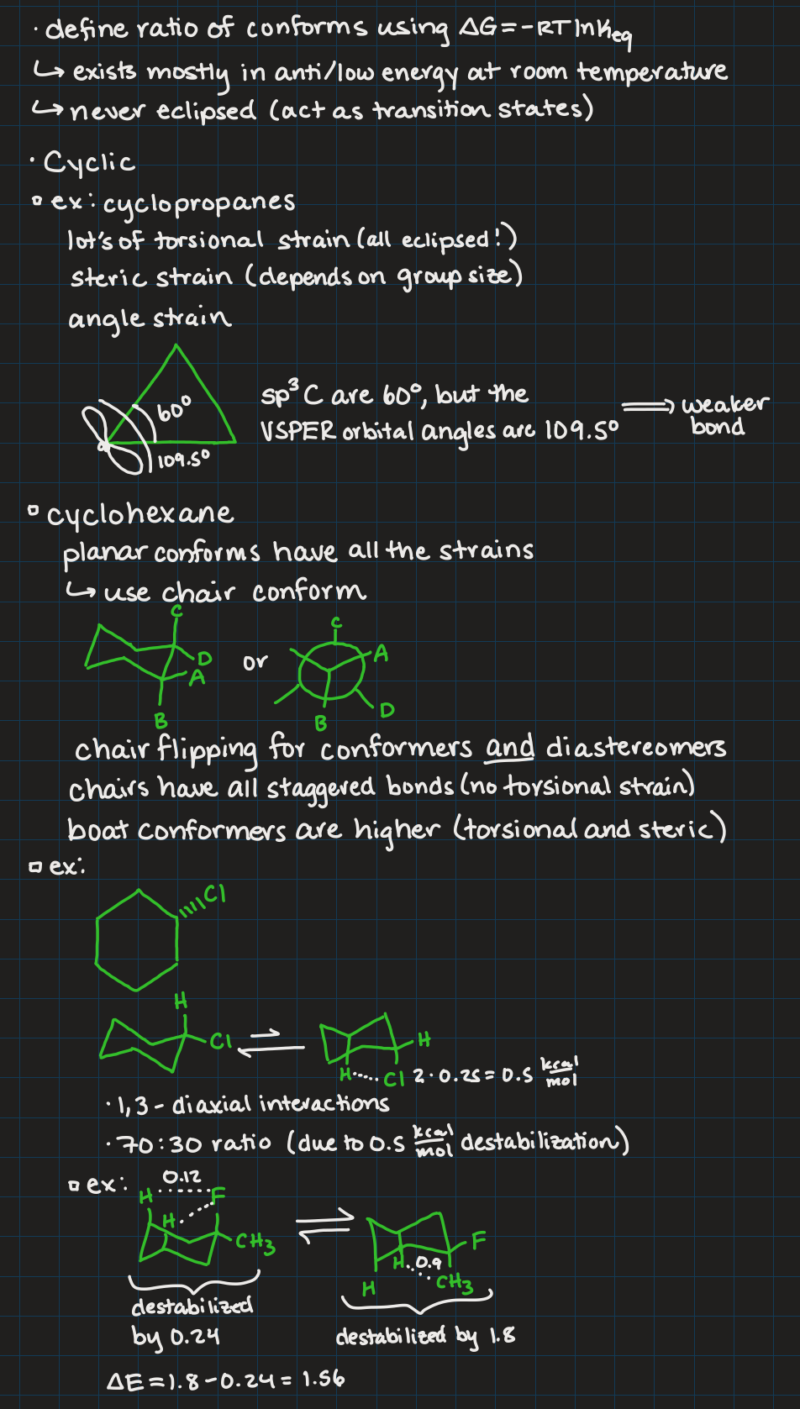 · define ratio of conforms using ΔG=-RTlnKeq
↳ exists mostly in anti/low energy at room temperature
↳ never eclipsed (act as transition states)
· Cyclic
▫ ex: cyclopropanes
lot's of torsional strain (all eclipsed!)
steric strain (depends on group size)
angle strain
60°
109.5°
sp³ C are 60°, but the
VSPER orbital angles are 109.5°
⟹ weaker
bond
▫ cyclohexane
planar conforms have all the strains
↳ use chair conform
C
D
A
B
or
C
A
B
D
chair flipping for conformers and diastereomers
chairs have all staggered bonds (no torsional strain)
boat conformers are higher (torsional and steric)
▫ ex:
Cl
H
Cl
⇌
H
H Cl 2·0.25 = 0.5 kcal/mol
· 1,3-diaxial interactions
· 70:30 ratio (due to 0.5 kcal/mol destabilization)
▫ ex:
0.12
H F
H
CH3
⇌
F
H 0.9
H CH3
destabilized
by 0.24
destabilized by 1.8
ΔE = 1.8 - 0.24 = 1.56